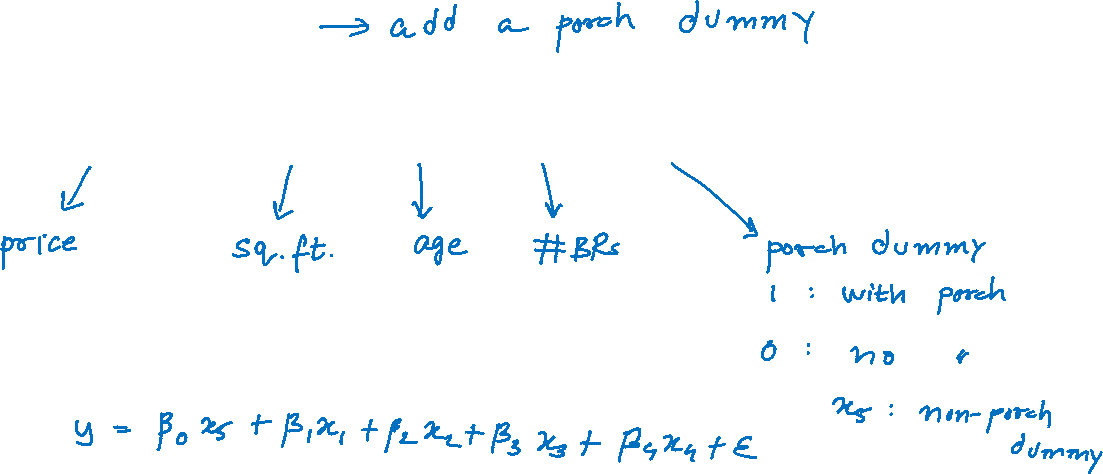 → add a porch dummy
price sq.ft. age #BRs porch dummy
1 : with porch
0 : no "
x₅ : non-porch dummy
y = β₀x₅ + β₁x₁ + β₂x₂ + β₃x₃ + β₄x₄ + ε